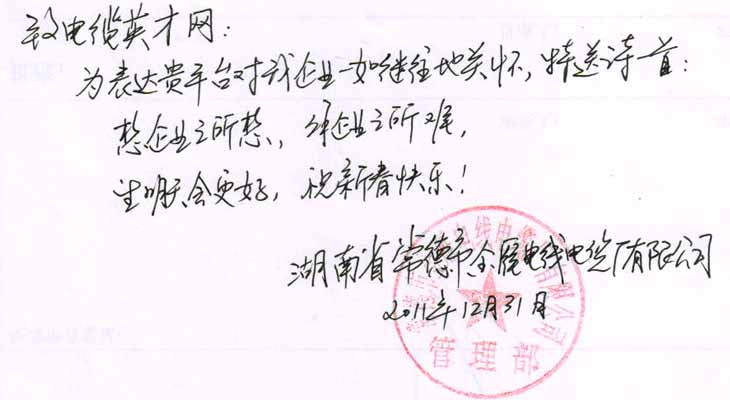 致电缆英才网：
为表达贵平台对我企业一如继往地关怀，特送诗一首：
想企业之所想，纾企业之所难，
坐明天会更好，祝新春快乐！
湖南省常德市金鹰电线电缆厂有限公司
2011年12月31日
管理部